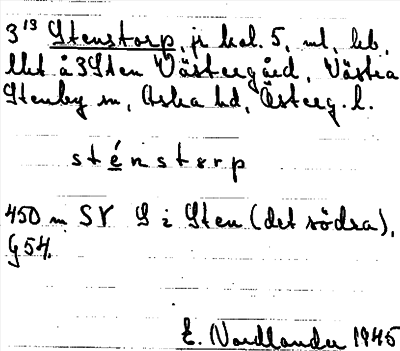 3¹³ Stenstorp, jr kol. 5, ml, bb,
llht å 3 Sten Västergård, Västra
Stenby sn, Aska hd, Österg. l.
sténstorp
450 m SV S i Sten (det södra),
G 54.
E. Nordlander 1945